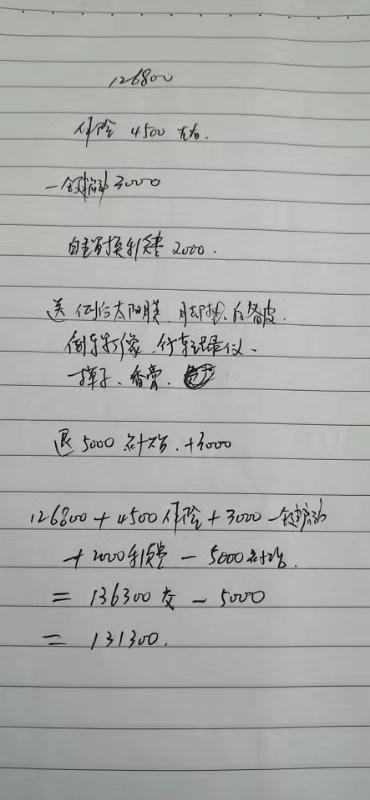 126800
保险 4500 左右.
一键启动 3000
自己置换利息 2000.
送 太阳膜、脚垫、后备
倒车影像、行车记录仪、
罩子、香膏、
退 5000 补贴. +3000
126800 + 4500保险 + 3000 一键启动
+ 2000利息 - 5000补贴.
= 136300 - 5000
= 131300.